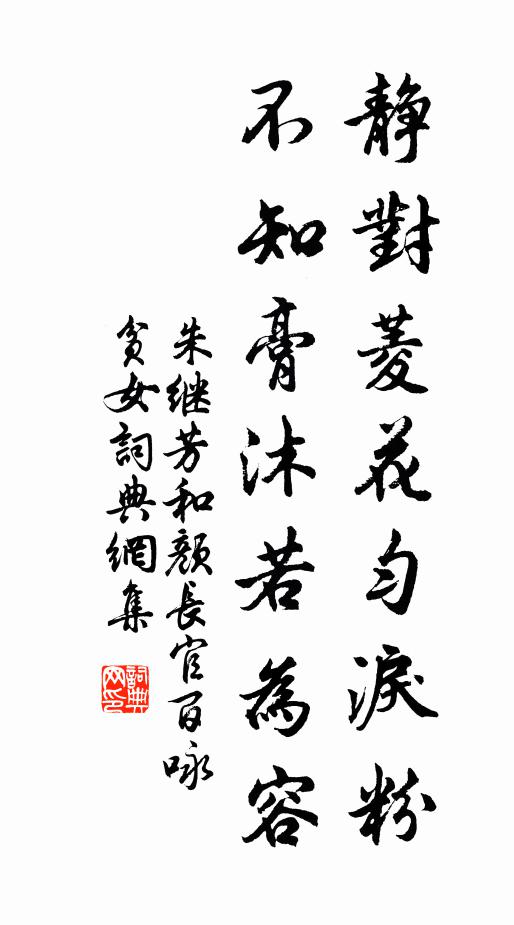 靜對菱花勻淚粉
不知膏沐若為容
朱继芳和顏長官百咏
貧女詞典網集
詞典网印